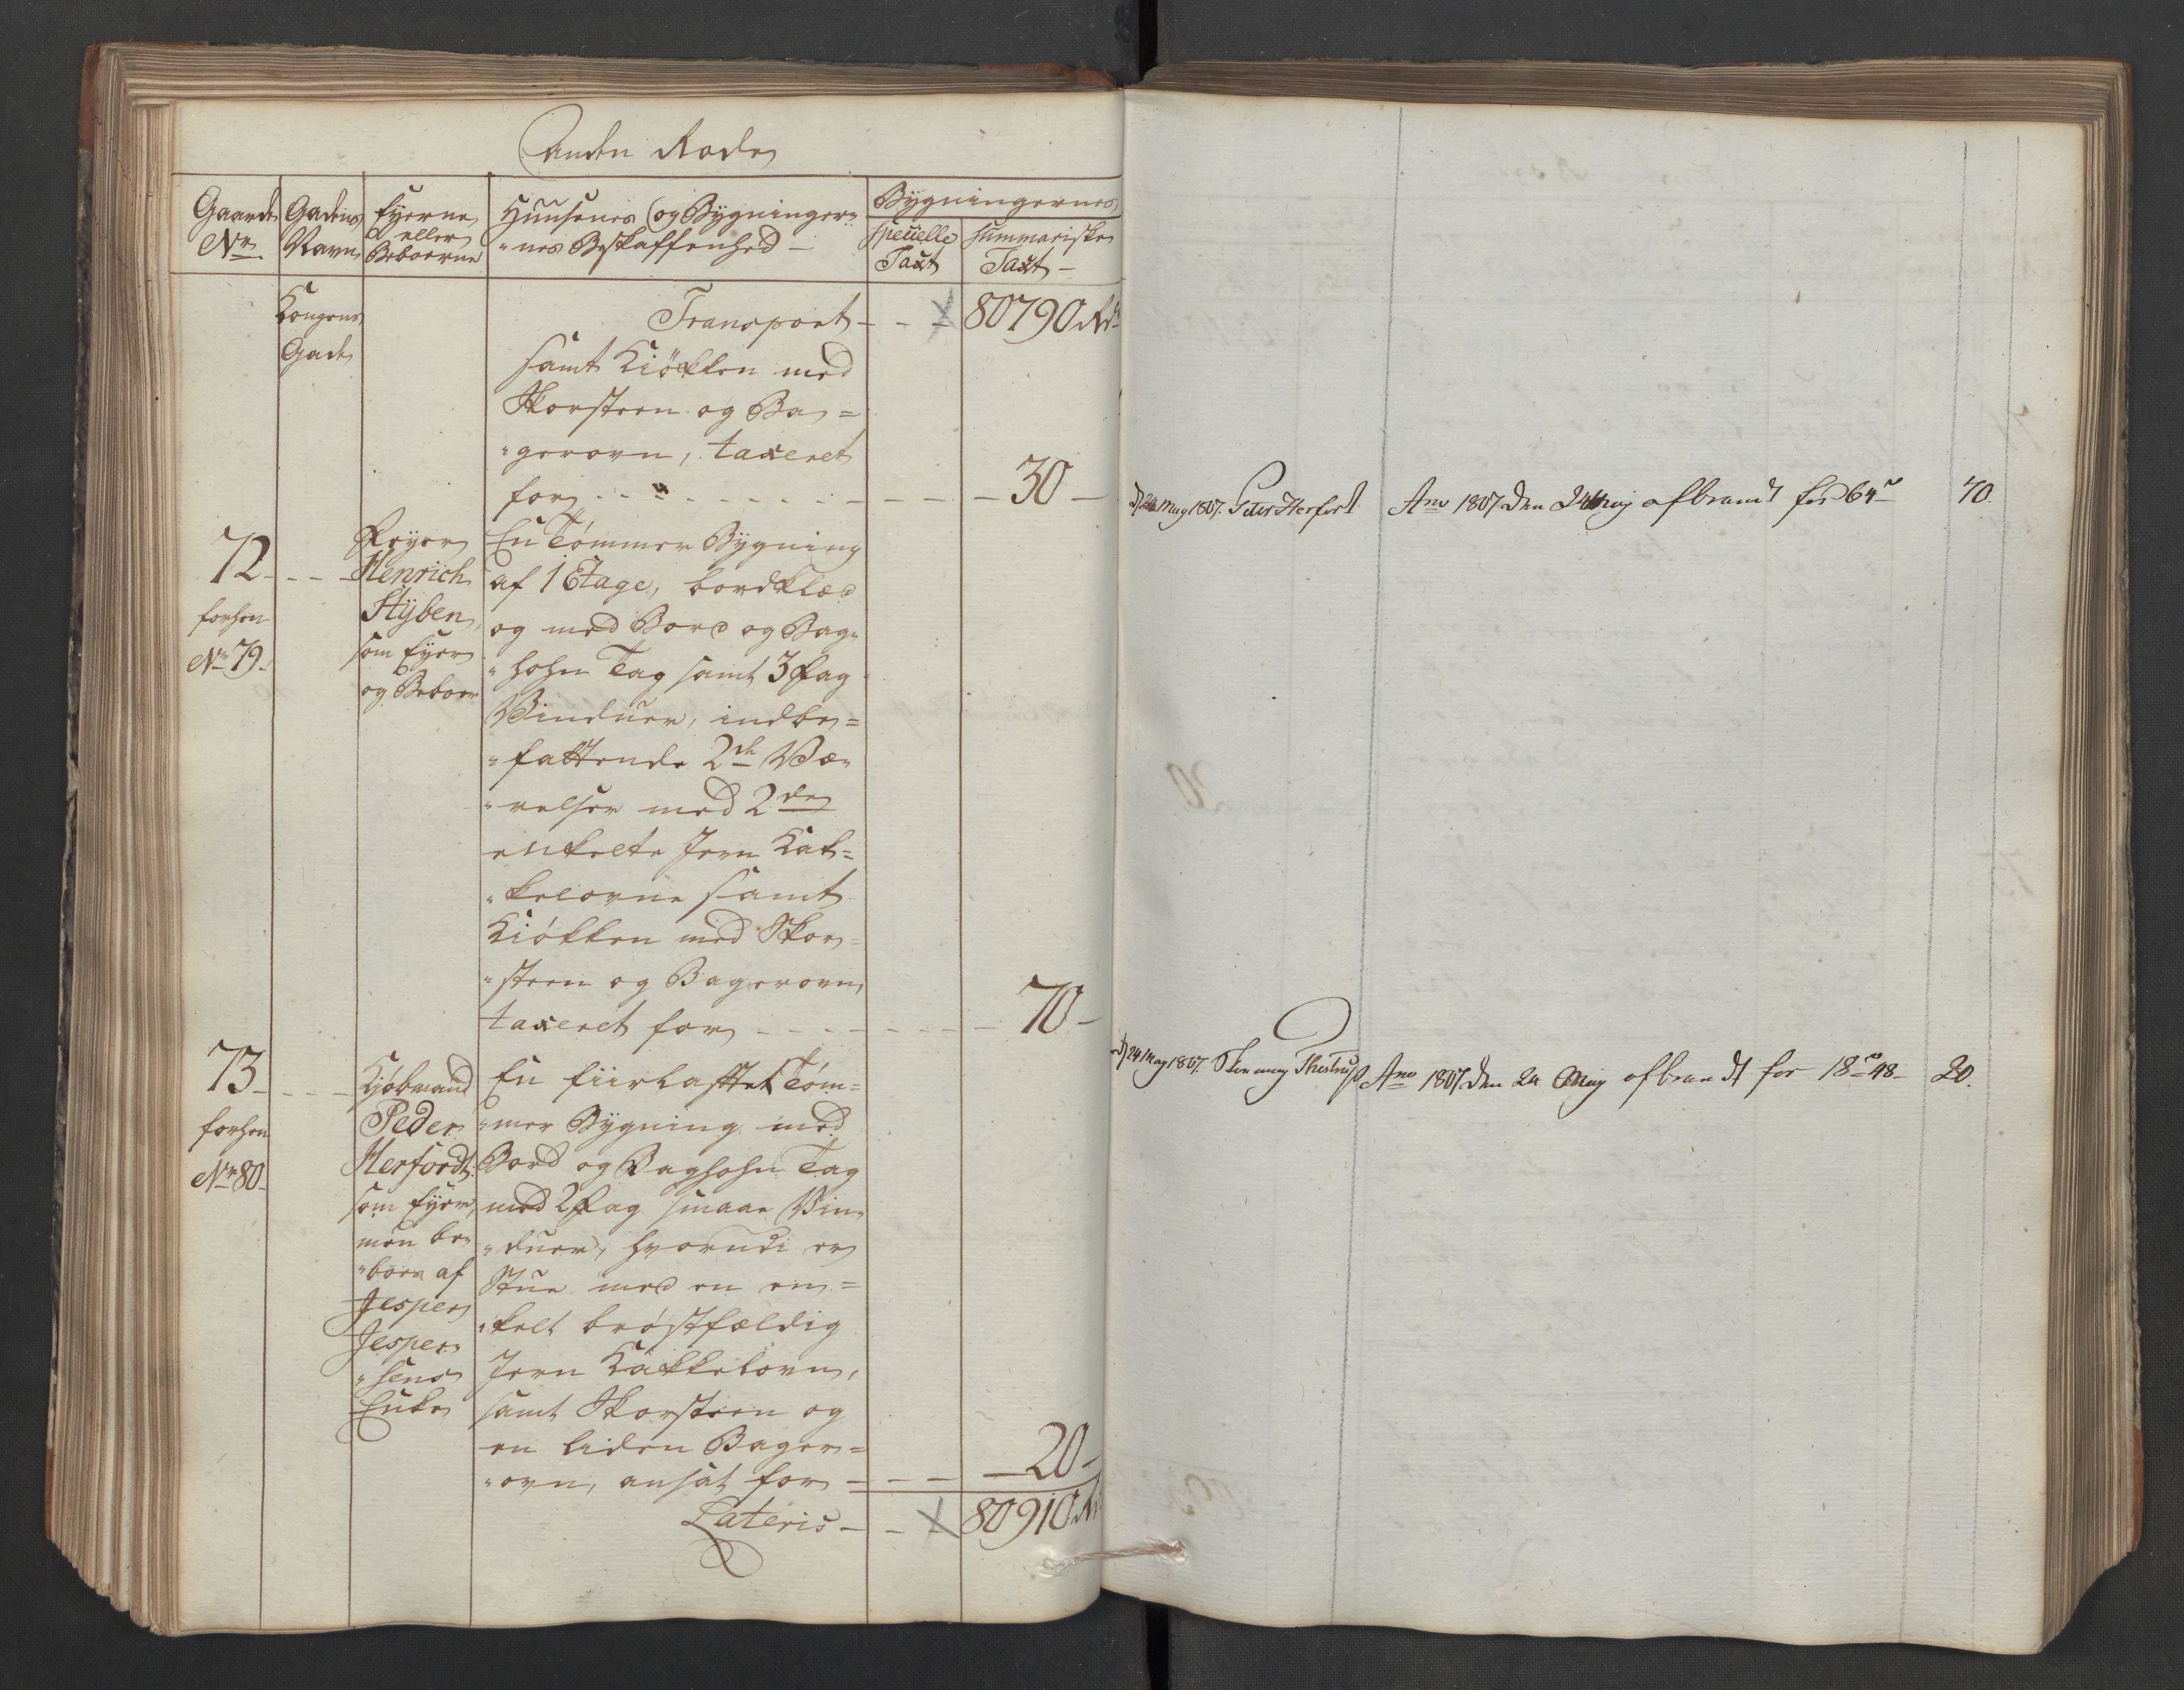 Anden Rode
Gaardens No.
Gadens Navn
Eyerne eller Beboerne
Huusenes og Bygninger-
"nes Beskaffenhed -
Bygningernes
specielle Taxt
summariske Taxt -
Kongens
Gade
Transport - - - 80790 Rd
samt Kiökken med
Skorsteen og Ba=
"gerovn, taxeret
for - - - - 30 -
72 - - -
forhen
No. 79.
Henrich
Stÿben,
som Eyer
og Beboer
En Tömmer Bygning
af 1 Etage, bordklæd
og med Bord og Bag-
"hohn Tag samt 3 Fag
Vinduer, indbe=
"fattende 2de Væ-
"relser med 2de
enkelte Jern Kak=
"kelovne samt
Kiökken med Skor=
"steen og Bagerovn,
taxeret for - - - - 70 -
73 - - -
forhen
No. 80 -
Kjöbmand
Peder
Herfordt
som Eyer,
men be-
"boes af
Jesper
Jesper-
"sens
Enke
En fiirlaftet Töm=
"mer Bygning med
Bord og Baghohn Tag
med 2 Fag smaae Vin-
"duer, hvorudi er
Stue med en en=
"kelt bröstfældig
Jern Kakkelovn,
samt Skorsteen og
en liden Bager=
"ovn, ansat for - - - - 20 -
Lateris - - 80910 Rd
24 May 1807. Peter Herfort Ano 1807 den 24 May afbrandt for 64 70.
24 May 1807. Thestrup Ano 1807 den 24 May afbrandt for 18 - 48 - 20.